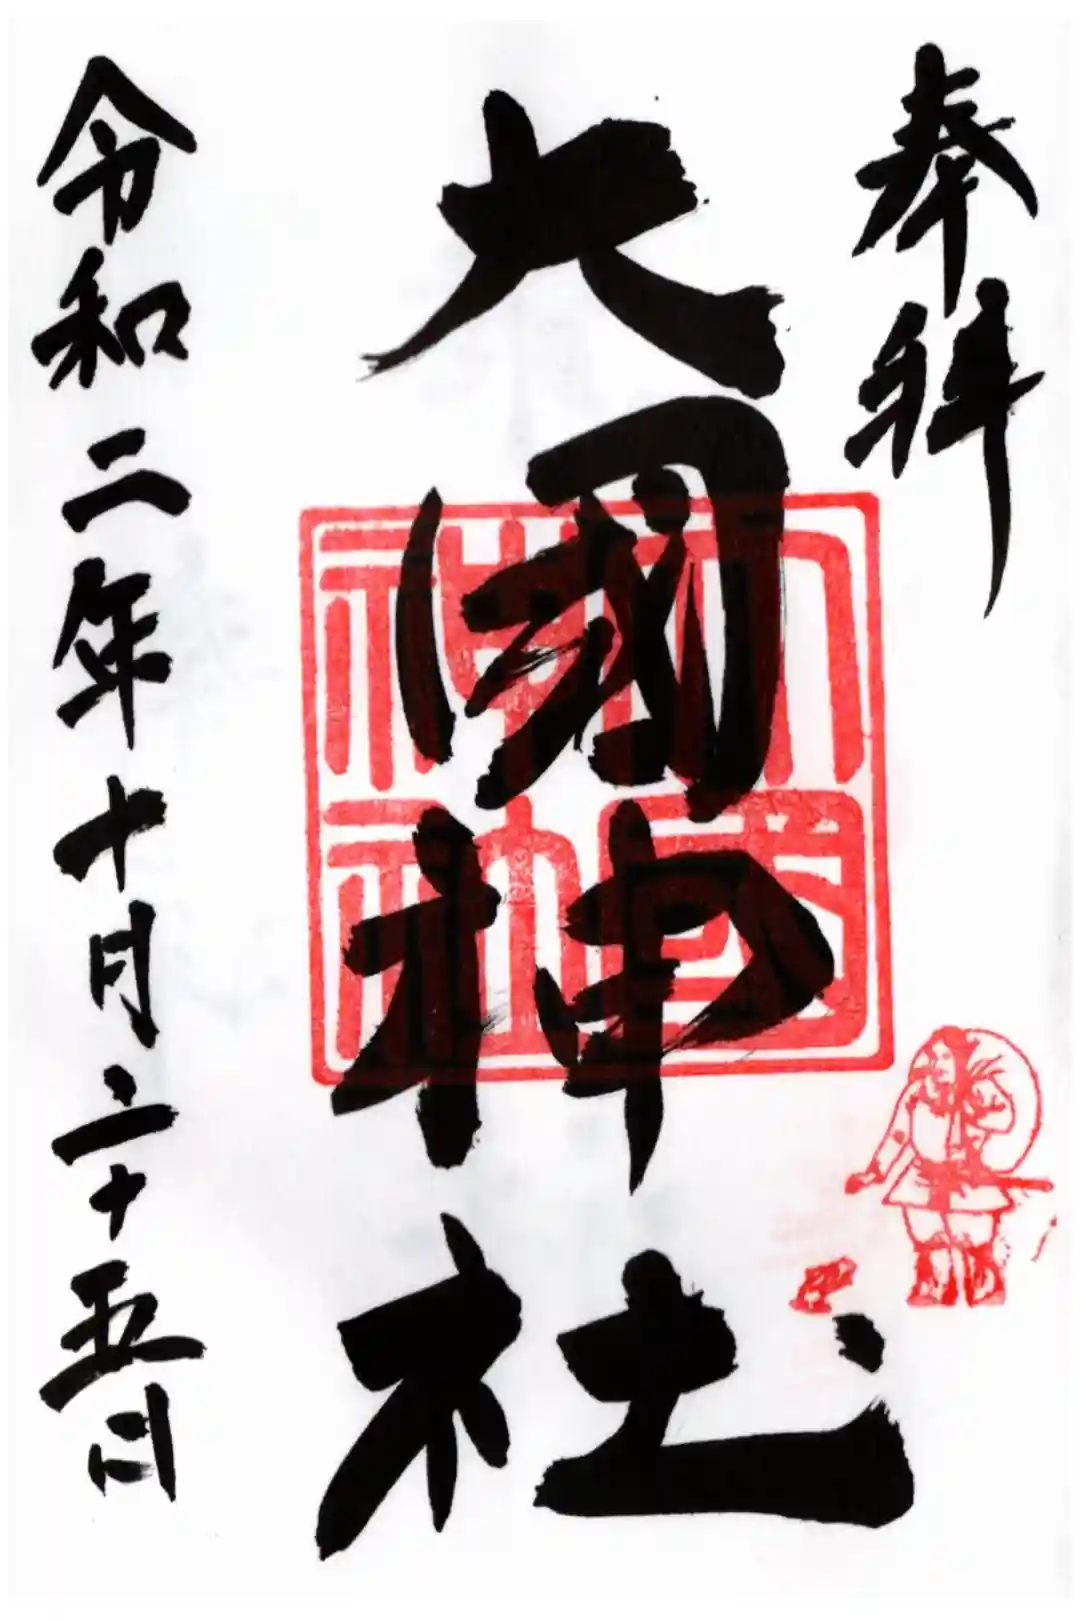 奉拝
大國神社
大國神社
令和二年十月二十五日